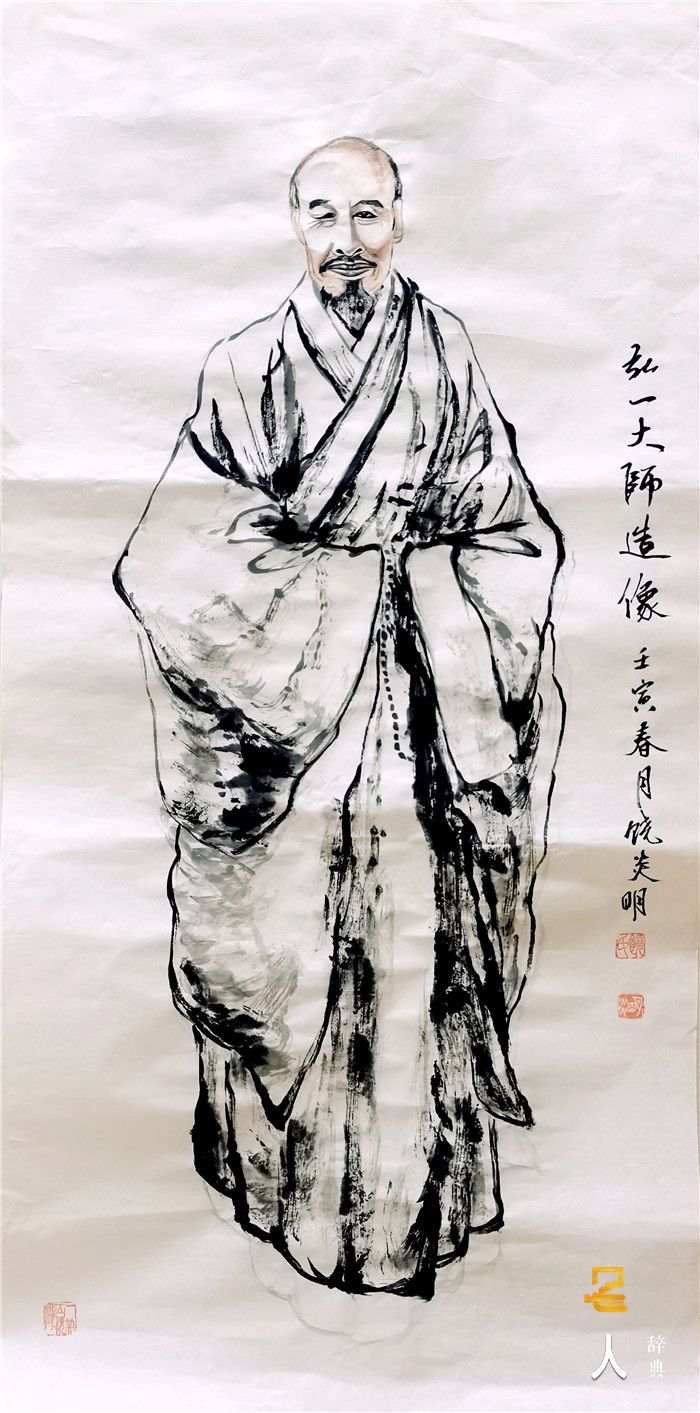 弘一大師造像
壬寅春月饒炎明
名
人
辞典